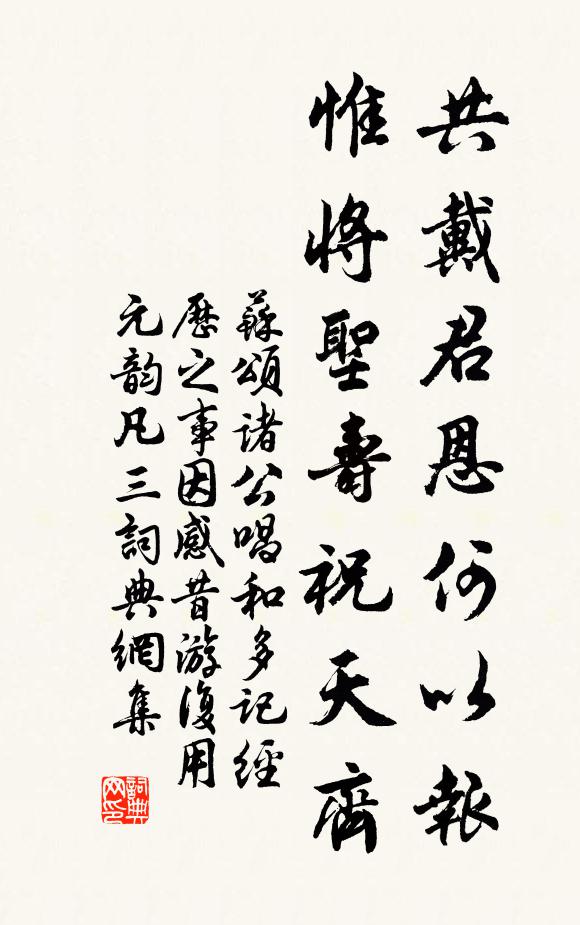 共戴君恩何以報
惟將聖壽祝天齊
蘇頌諸公唱和多記經
歷之事因感昔游復用
元韵凡三詞典網集
詞典
网印